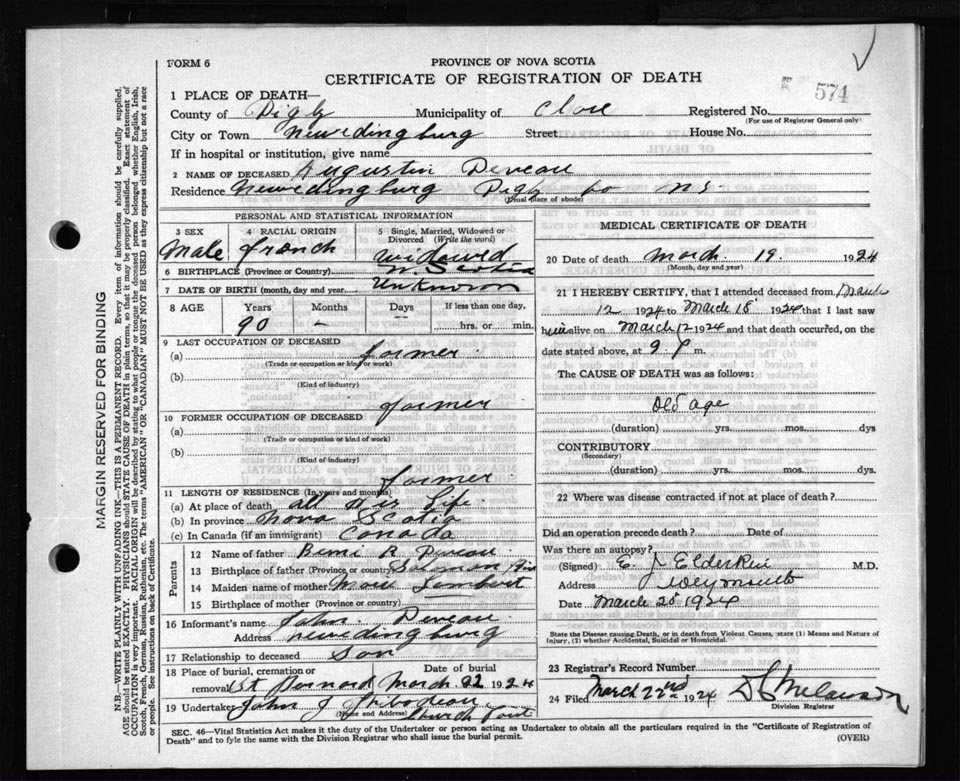 FORM 6
PROVINCE OF NOVA SCOTIA
CERTIFICATE OF REGISTRATION OF DEATH
574
1 PLACE OF DEATH—
County of Digby Municipality of Clare Registered No.
(For use of Registrar General only)
City or Town Newedingburg Street House No.
If in hospital or institution, give name
2 NAME OF DECEASED Augustin Deveau
Residence Newedingburg Digby Co NS
(Usual place of abode)
PERSONAL AND STATISTICAL INFORMATION
3 SEX 4 RACIAL ORIGIN 5 Single, Married, Widowed or Divorced (Write the word)
Male french widowed
6 BIRTHPLACE (Province or Country) N. Scotia
7 DATE OF BIRTH (month, day and year) Unknown
8 AGE Years Months Days If less than one day,
90 - - hrs. or min.
9 LAST OCCUPATION OF DECEASED
(a) farmer
(Trade or occupation or kind of work)
(b)
(Kind of industry)
farmer
10 FORMER OCCUPATION OF DECEASED
(a)
(Trade or occupation or kind of work)
(b)
(Kind of industry)
farmer
11 LENGTH OF RESIDENCE (In years and months)
(a) At place of death all his Life
(b) In province Nova Scotia
(c) In Canada (if an immigrant) Canada
Parents
12 Name of father Deveau
13 Birthplace of father (Province or Country) Salmon
14 Maiden name of mother Lambert
15 Birthplace of mother (Province or country)
16 Informant's name John Deveau
Address Newedingburg
17 Relationship to deceased Son
18 Place of burial, cremation or removal Date of burial
St Bernard March 22 1924
19 Undertaker John J
(Name and Address) Church Point
MEDICAL CERTIFICATE OF DEATH
20 Date of death March 19 1924
(Month, day and year)
21 I HEREBY CERTIFY, that I attended deceased from March
12 1924 to March 18 1924 that I last saw
him alive on March 12 1924 and that death occurred, on the
date stated above, at 9 P m.
The CAUSE OF DEATH was as follows:
Old age
(duration) yrs. mos. dys
CONTRIBUTORY
(Secondary)
(duration) yrs. mos. dys.
22 Where was disease contracted if not at place of death?
Did an operation precede death? Date of
Was there an autopsy?
(Signed) E. J Elderkin M.D.
Address Weymouth
Date March 20 1924
State the Disease causing Death, or in death from Violent Causes, state (1) Means and Nature of
Injury, (2) whether Accidental, Suicidal or Homicidal.
23 Registrar's Record Number
24 Filed March 22nd 1924
Division Registrar
SEC. 46—Vital Statistics Act makes it the duty of the Undertaker or person acting as Undertaker to obtain all the particulars required in the "Certificate of Registration of
Death" and to fyle the same with the Division Registrar who shall issue the burial permit.
(OVER)
MARGIN RESERVED FOR BINDING
N.B.—WRITE PLAINLY WITH UNFADING INK—THIS IS A PERMANENT RECORD. Every item of information should be carefully supplied.
AGE should be stated EXACTLY. PHYSICIANS should STATE CAUSE OF DEATH in plain terms, so that it may be properly classified. Exact statement of
OCCUPATION is very important. RACIAL ORIGIN will be described by stating to what people or tongue the deceased person belonged whether English, Irish,
Scotch, French, German, Russian, Ruthenian, etc. The terms "AMERICAN" OR "CANADIAN" MUST NOT BE USED as they express citizenship but not a race
or people. See instructions on back of Certificate.